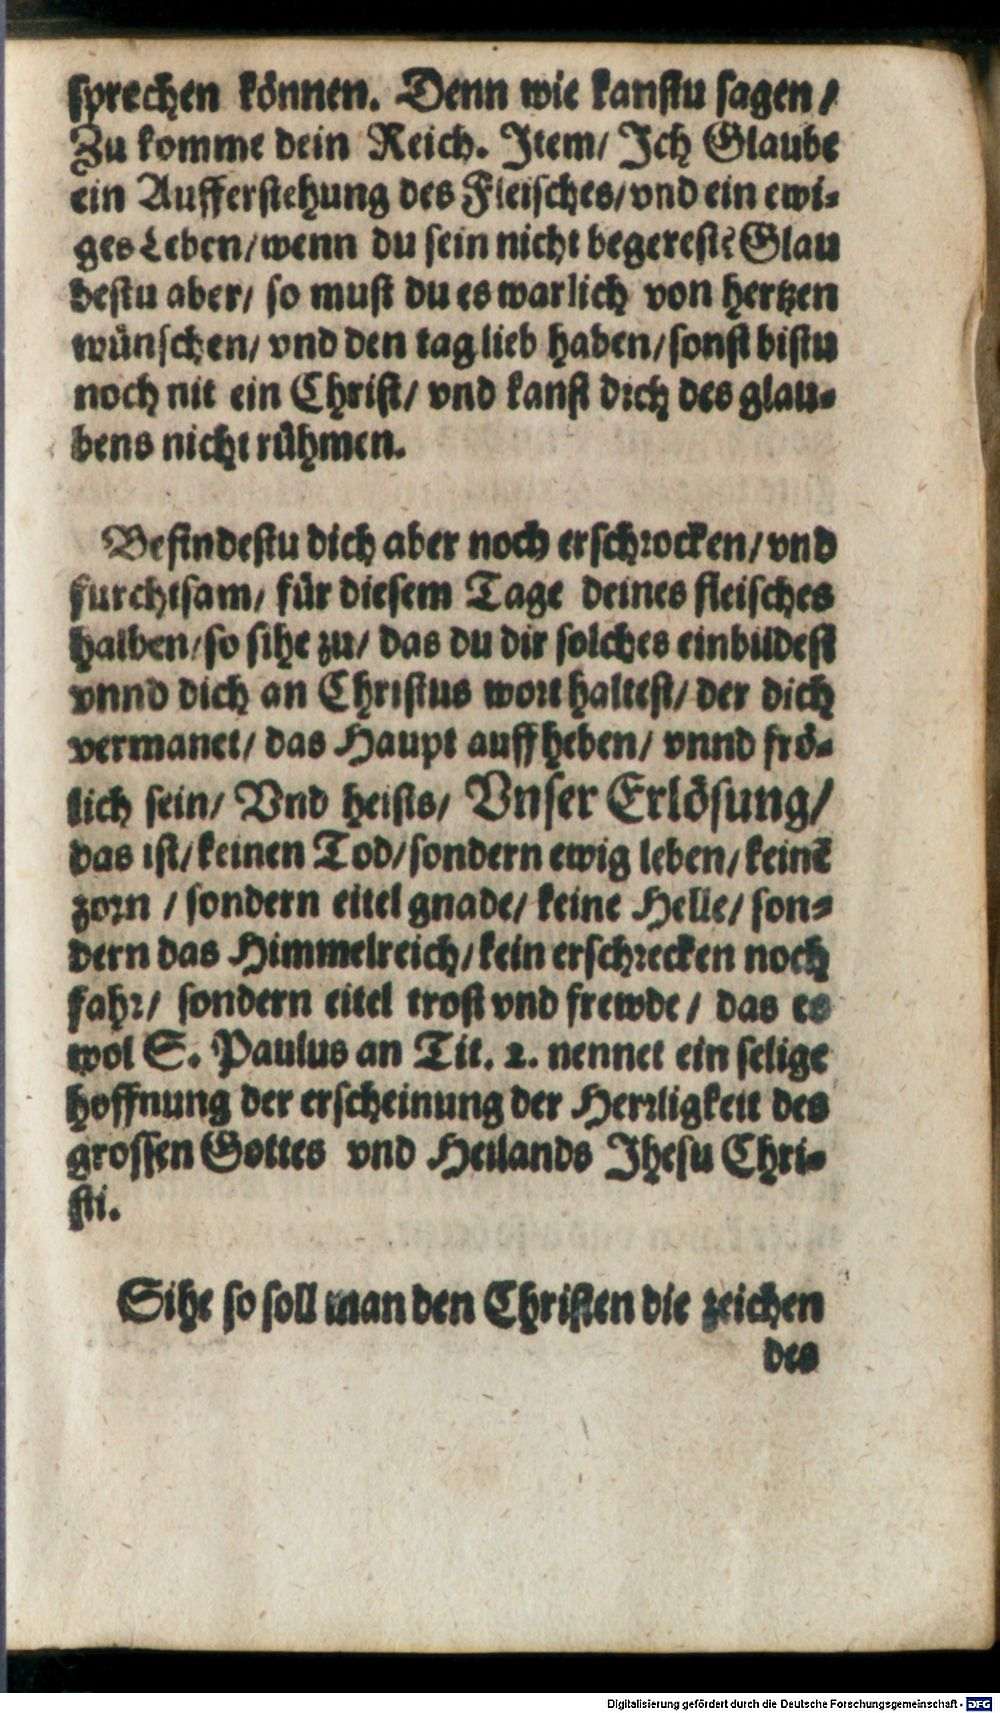 sprechen können. Denn wie kanstu sagen /
Zu komme dein Reich. Item/ Ich Glaube
ein Aufferstehung des Fleisches/ vnd ein ewi-
ges Leben/ wenn du sein nicht begerest? Glau
bestu aber/ so must du es warlich von hertzen
wünschen/ vnd den tag lieb haben/ sonst bistu
noch nit ein Christ/ vnd kanst dich des glau-
bens nicht rühmen.
Befindestu dich aber noch erschrocken/ vnd
furchtsam/ für diesem Tage deines fleisches
halben/ so sihe zu/ das du dir solches einbildest
vnnd dich an Christus wort haltest/ der dich
vermanet/ das Haupt auff heben/ vnnd frö-
lich sein/ Vnd heists/ Vnser Erlösung/
das ist/ keinen Tod/ sondern ewig leben/ keinē
zorn / sondern eitel gnade/ keine Helle/ son-
dern das Himmelreich/ kein erschrecken noch
fahr/ sondern eitel trost vnd frewde / das es
wol S. Paulus an Tit. 2. nennet ein selige
hoffnung der erscheinung der Herrligkeit des
grossen Gottes vnd Heilands Jhesu Chri-
sti.
Sihe so soll man den Christen die zeichen
des
Digitalisierung gefördert durch die Deutsche Forschungsgemeinschaft - DFG